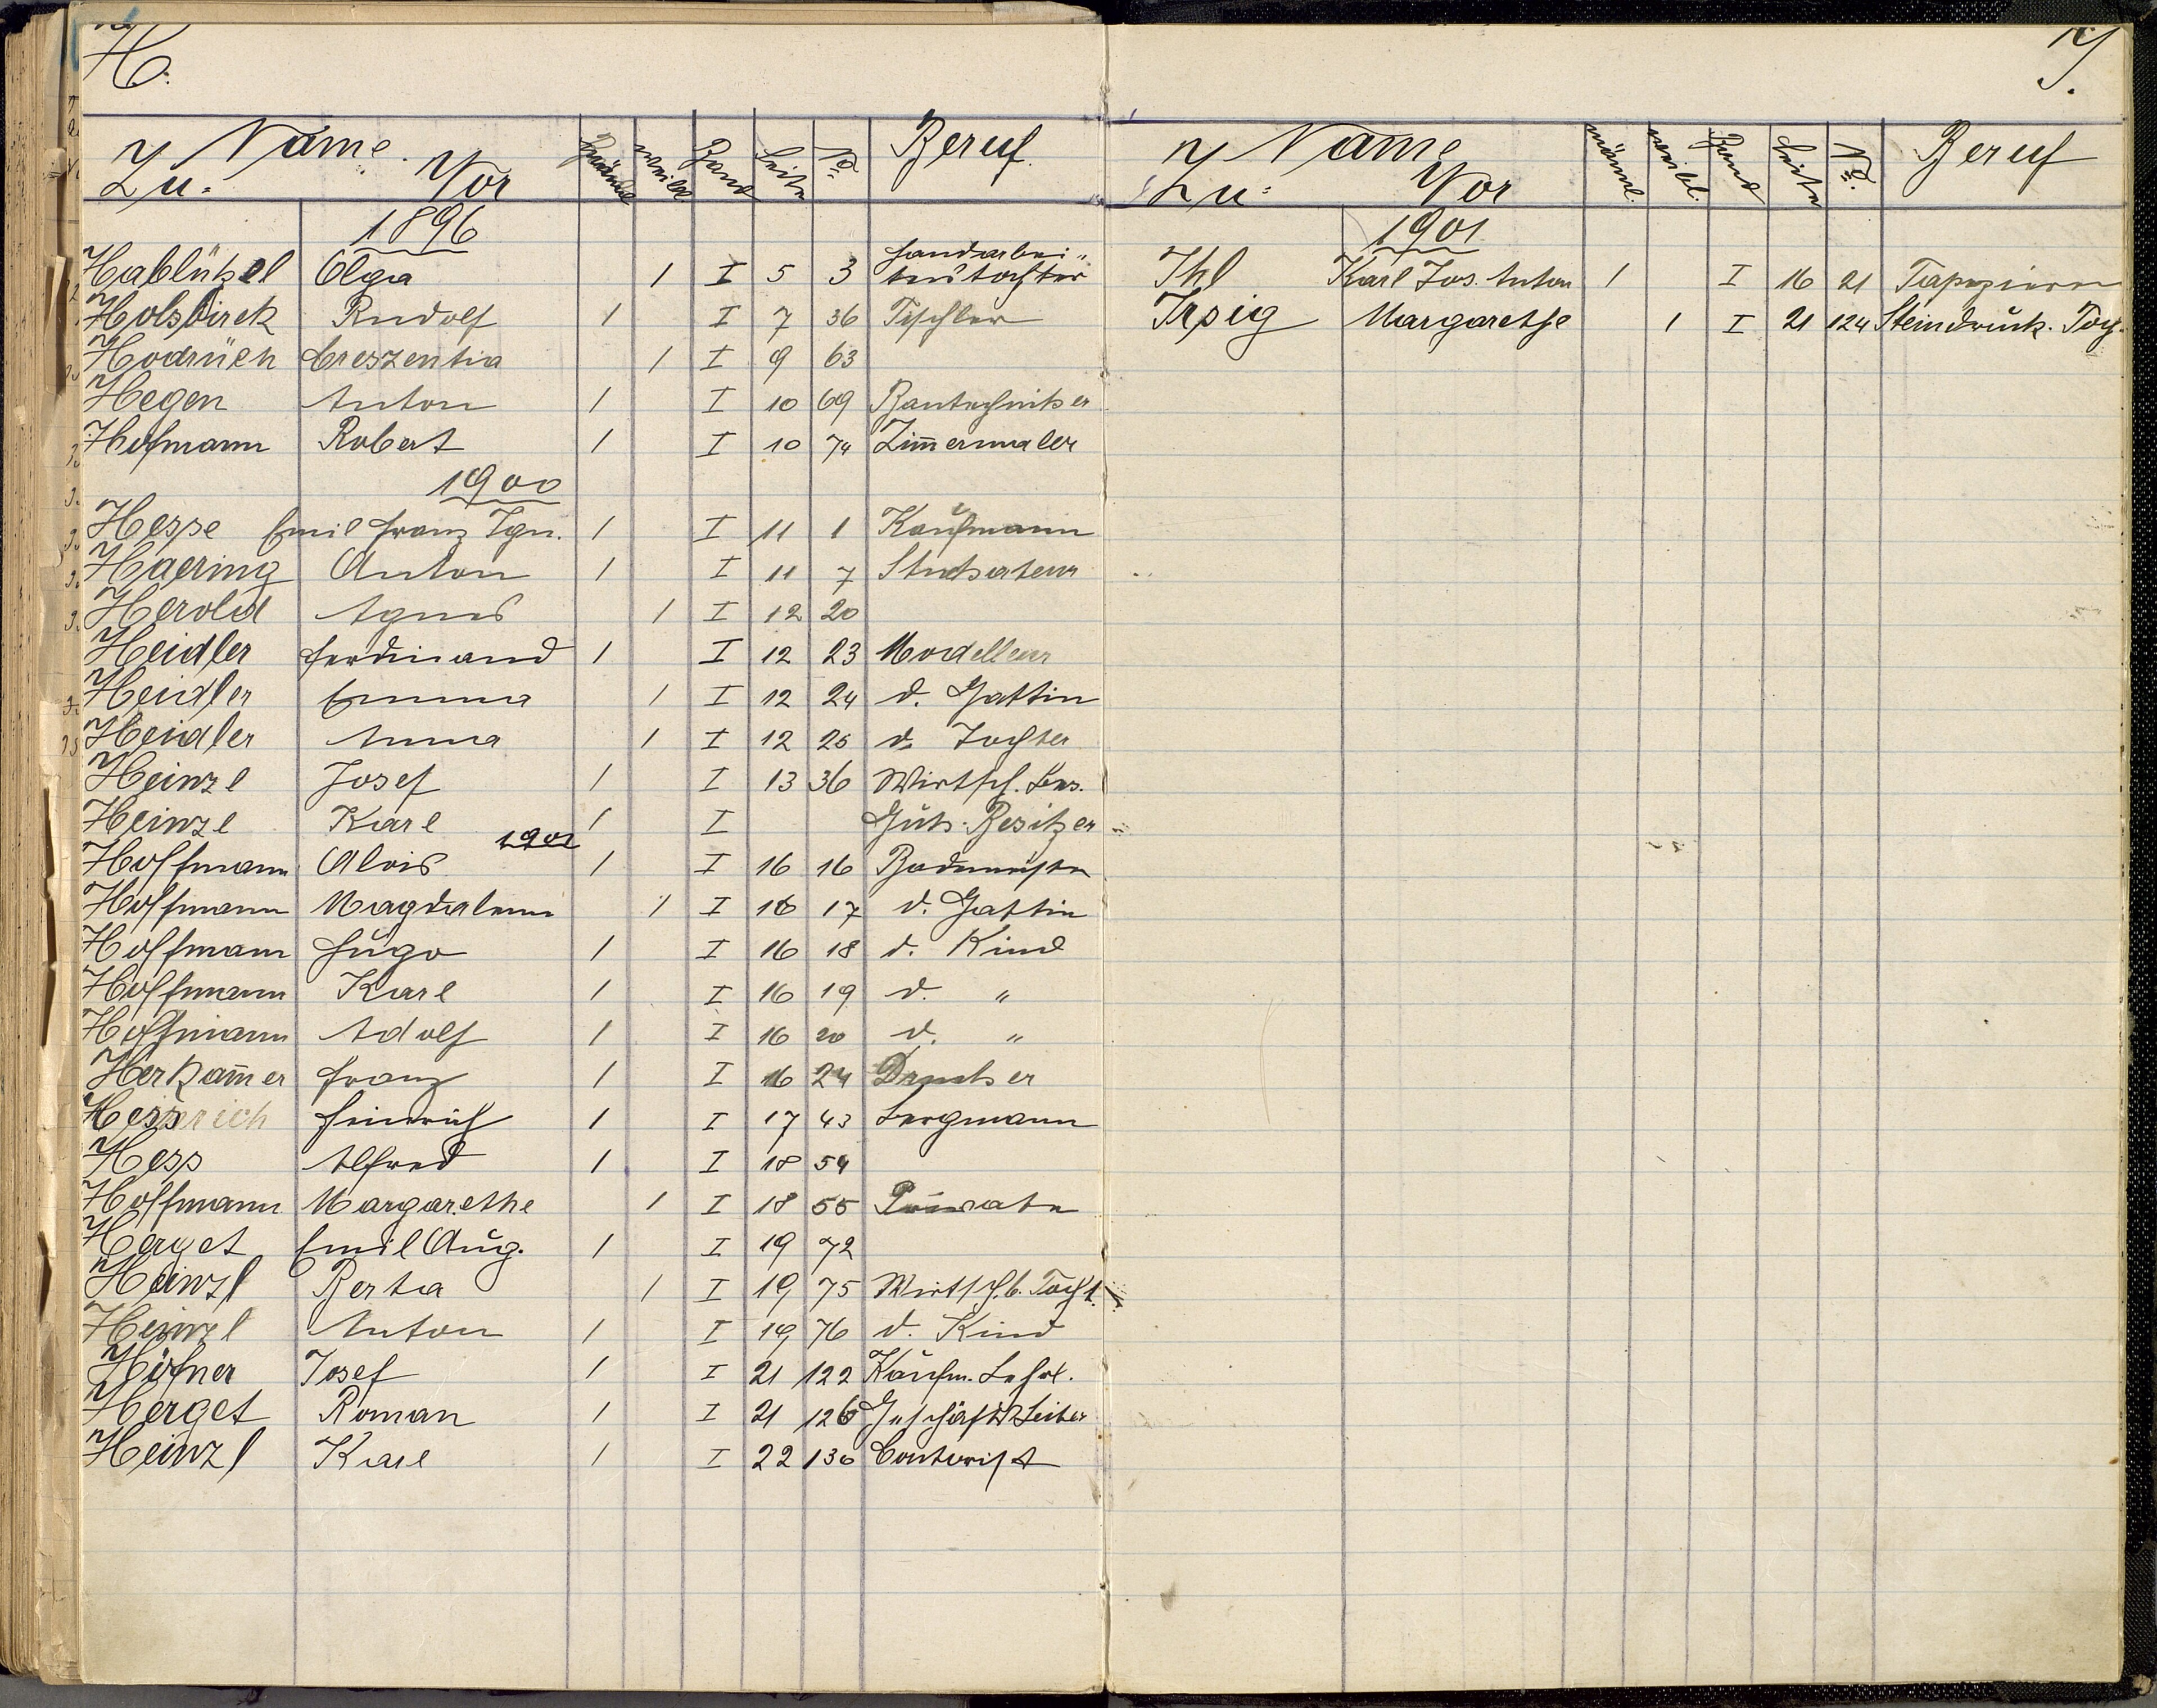 H.
Name.
Zu- Vor männl weibl Band Seite No: Beruf.
1896
Handarbei-
Hablützel Olga 1 I 5 3 terstochter
Holsbirek Rudolf 1 I 7 36 Tischler
Hodrüch Creszentia 1 I 9 63
Hegen Anton 1 I 10 69 Bautechniker
Hofmann Robert 1 I 10 74 Zim̄ermaler
1900
Hesse Emil Franz Ign. 1 I 11 1 Kaufmann
Haering Anton 1 I 11 7 Stuckateur
Herold Agnes 1 I 12 20
Heidler Ferdinand 1 I 12 23 Modelleur
Heidler Emma 1 I 12 24 d. Gattin
Heidler Anna 1 I 12 25 d. Tochter
Heinzl Josef 1 I 13 36 Wirtsch. Bes.
Heinzl Karl 1 I Guts-Besitzer
1901
Hoffmann Alois 1 I 16 16
Hoffmann Magdalena 1 I 16 17 d. Gattin
Hoffmann Hugo 1 I 16 18 d. Kind
Hoffmann Karl 1 I 16 19 d. "
Hoffmann Adolf 1 I 16 20 d. "
Herkam̄er Franz 1 I 16 24 Drucker
Heinrich 1 I 17 43 Bergmann
Hess Alfred 1 I 18 54
Hoffmann Margarethe 1 I 18 55 Private
Herget Emil Aug. 1 I 19 72
Heinzl Berta 1 I 19 75 Wirtsch.b. Tocht.
Heinzl Anton 1 I 19 76 d. Kind
Höfner Josef 1 I 21 122 Kaufm. Lehrl.
Herget Roman 1 I 21 126 Geschäfts Leiter
Heinzl Karl 1 I 22 130 Contorist
J.
Name
Zu- Vor männl. weibl. Band Seite No. Beruf
1901
Ihl Karl Jos. Anton 1 I 16 21 Tapezierer
Irsig Margarethe 1 I 21 124 Steindruck. Toch.